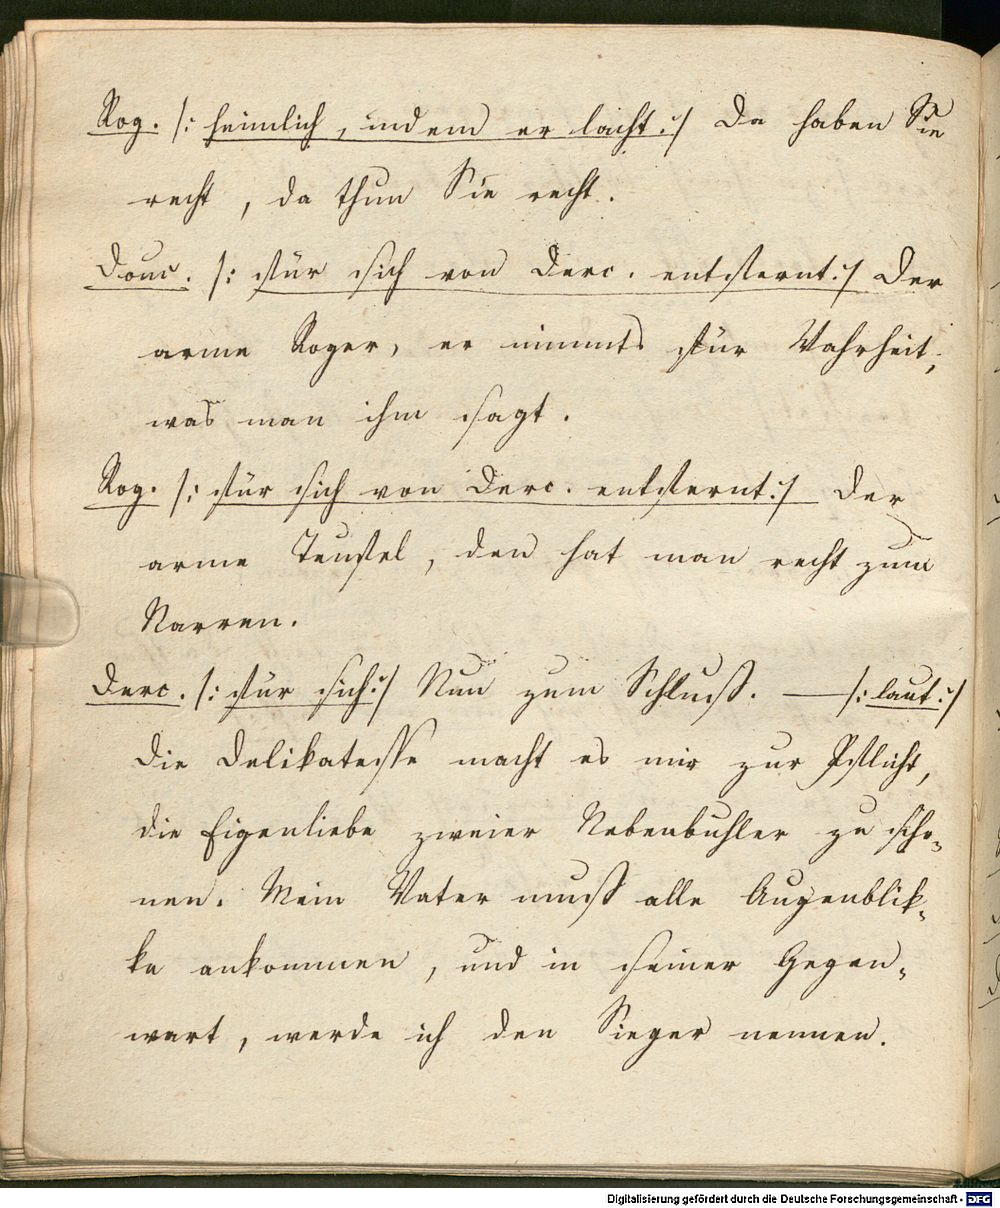 Rog. /: heimlich, indem er lacht :/ Da haben Sie
recht, da thun Sie recht.
Douc. /: für sich von Derc. entfernt :/ Der
arme Roger, er nimmts für Wahrheit,
was man ihm sagt.
Rog. /: für sich von Derc. entfernt :/ Der
arme Teufel, den hat man recht zum
Narren.
Derc. /: für sich :/ Nun zum Schluß. — /: laut :/
die Delikatesse macht es mir zur Pflicht,
die Eigenliebe zweier Nebenbuhler zu scho-
nen. Mein Vater muß alle Augenblik-
ke ankommen, und in seiner Gegen-
wart, werde ich den Sieger nennen.
Digitalisierung gefördert durch die Deutsche Forschungsgemeinschaft - DFG